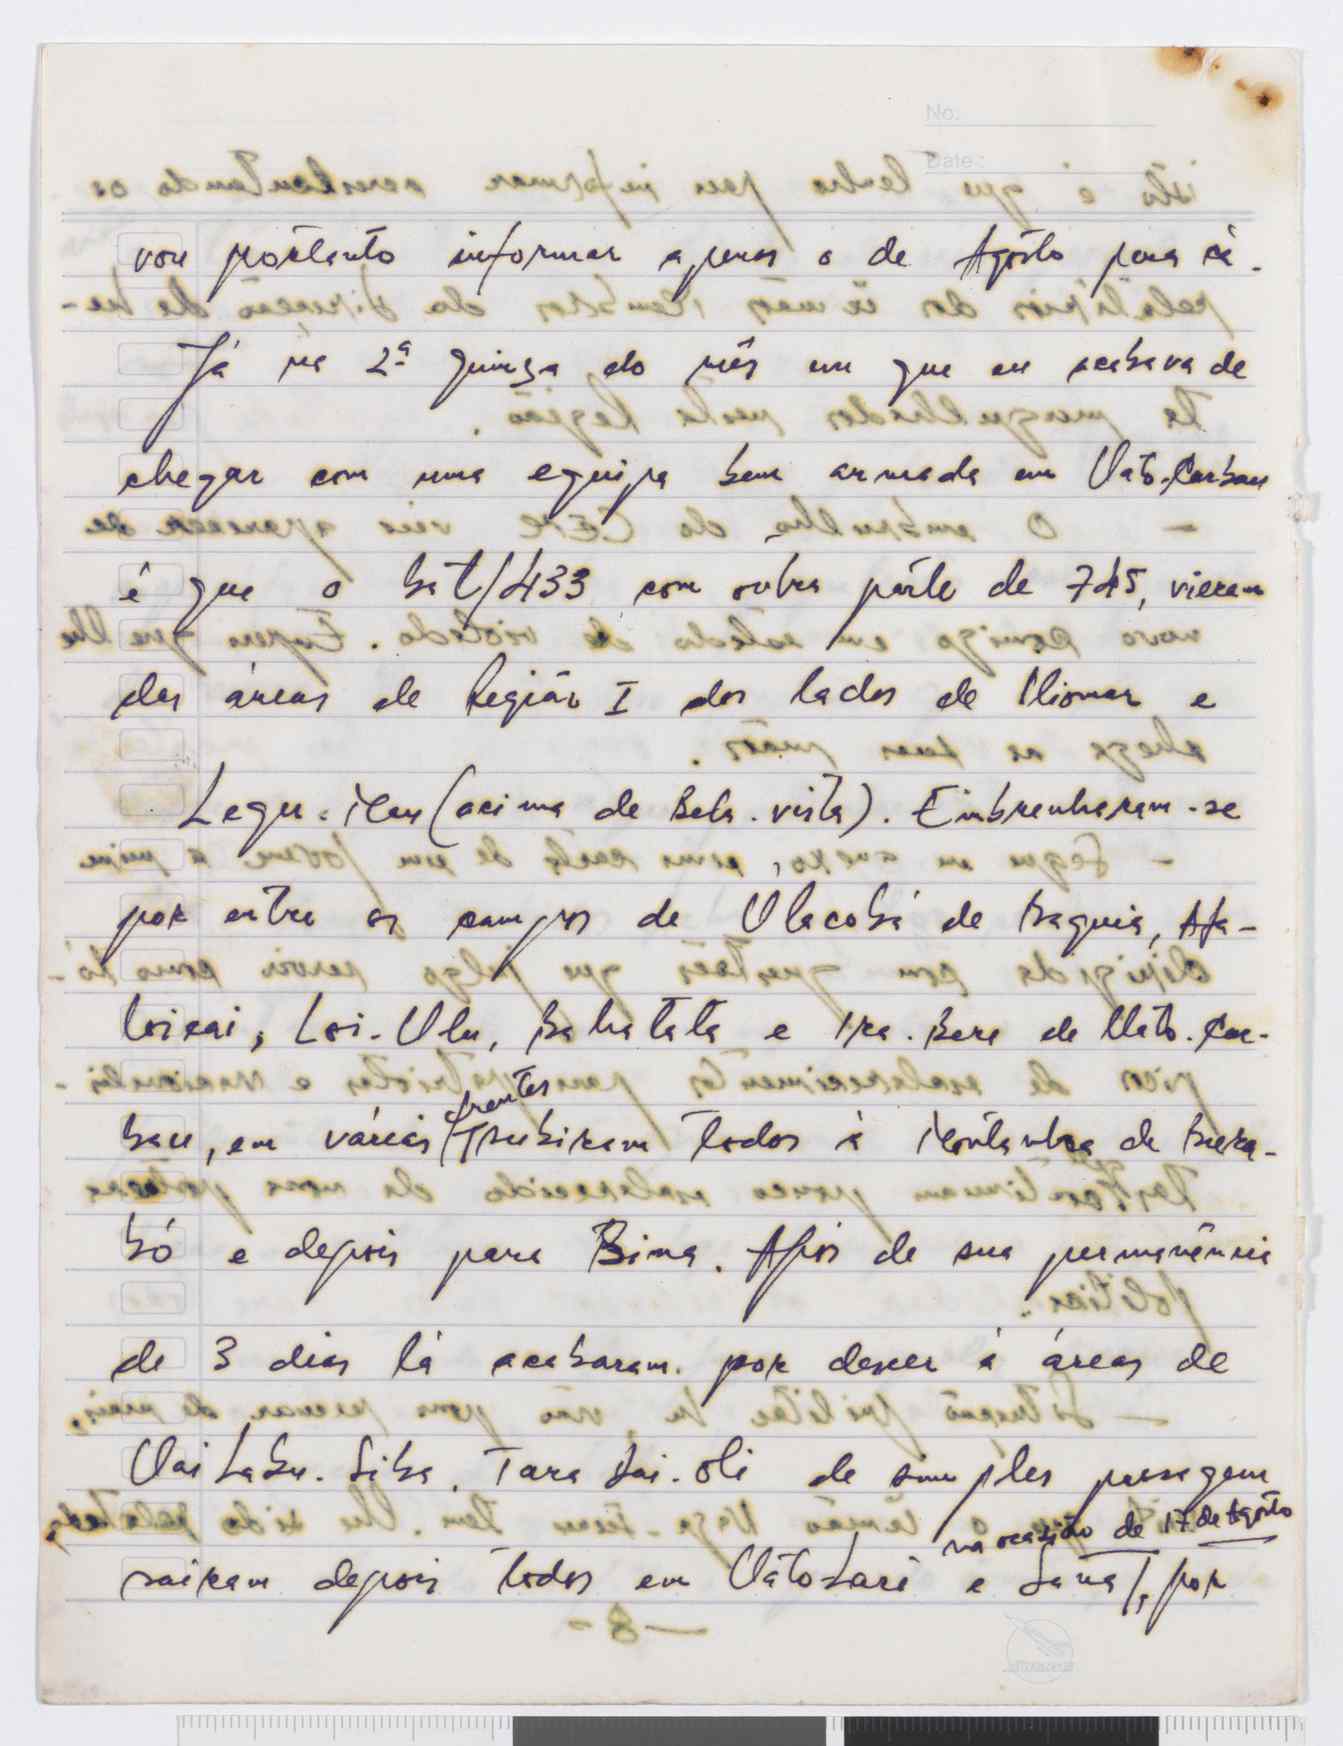 No:
Date:
vou portanto informar apenas o de Agosto para cá.
Já na 2ª quinza do mês em que eu acabava de
chegar com uma equipa bem armada em Uato-Carbau
é que o bat/433 com outra parte de 745, vieram
das áreas de Região I dos lados de Iliomar e
Legu. (acima de Bela-vista). Embrenharam-se
por entre os campos de Ulacobá de Baguia, Afa-
loicai, Loi-Ulu, Bahatata e Ira-Bere de Uato-Car-
bau, em várias frentes subiram todos à Montanha de
bó e depois para Bima. Após de sua permanência
de 3 dias lá acabaram por descer à áreas de
de simples passagem
na ocasião de 17 de Agosto
sairam depois todos em Uatolari e , por